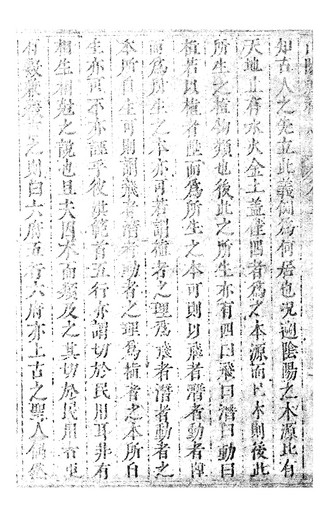 知古人之先立此義例為何若也況廼陰陽之本源止有
天地止有水火金土蓋但四者為之本源而已木則後此
所生之植物類也後此之所生亦有四曰飛曰潛曰動曰
植若以植者歷而為所生之本可則以飛者潛者動者俾
而為所生之本亦可若謂植者之理為飛者潛者動者之
本所自生可則謂飛者潛者動者之理為植者之本所自
生亦可不亦誣乎彼洪範首五行亦謂切於民用耳非有
相生相剋之說也且夫因水而類及之其切於民用者
之則曰六府五行六府亦上古之聖人